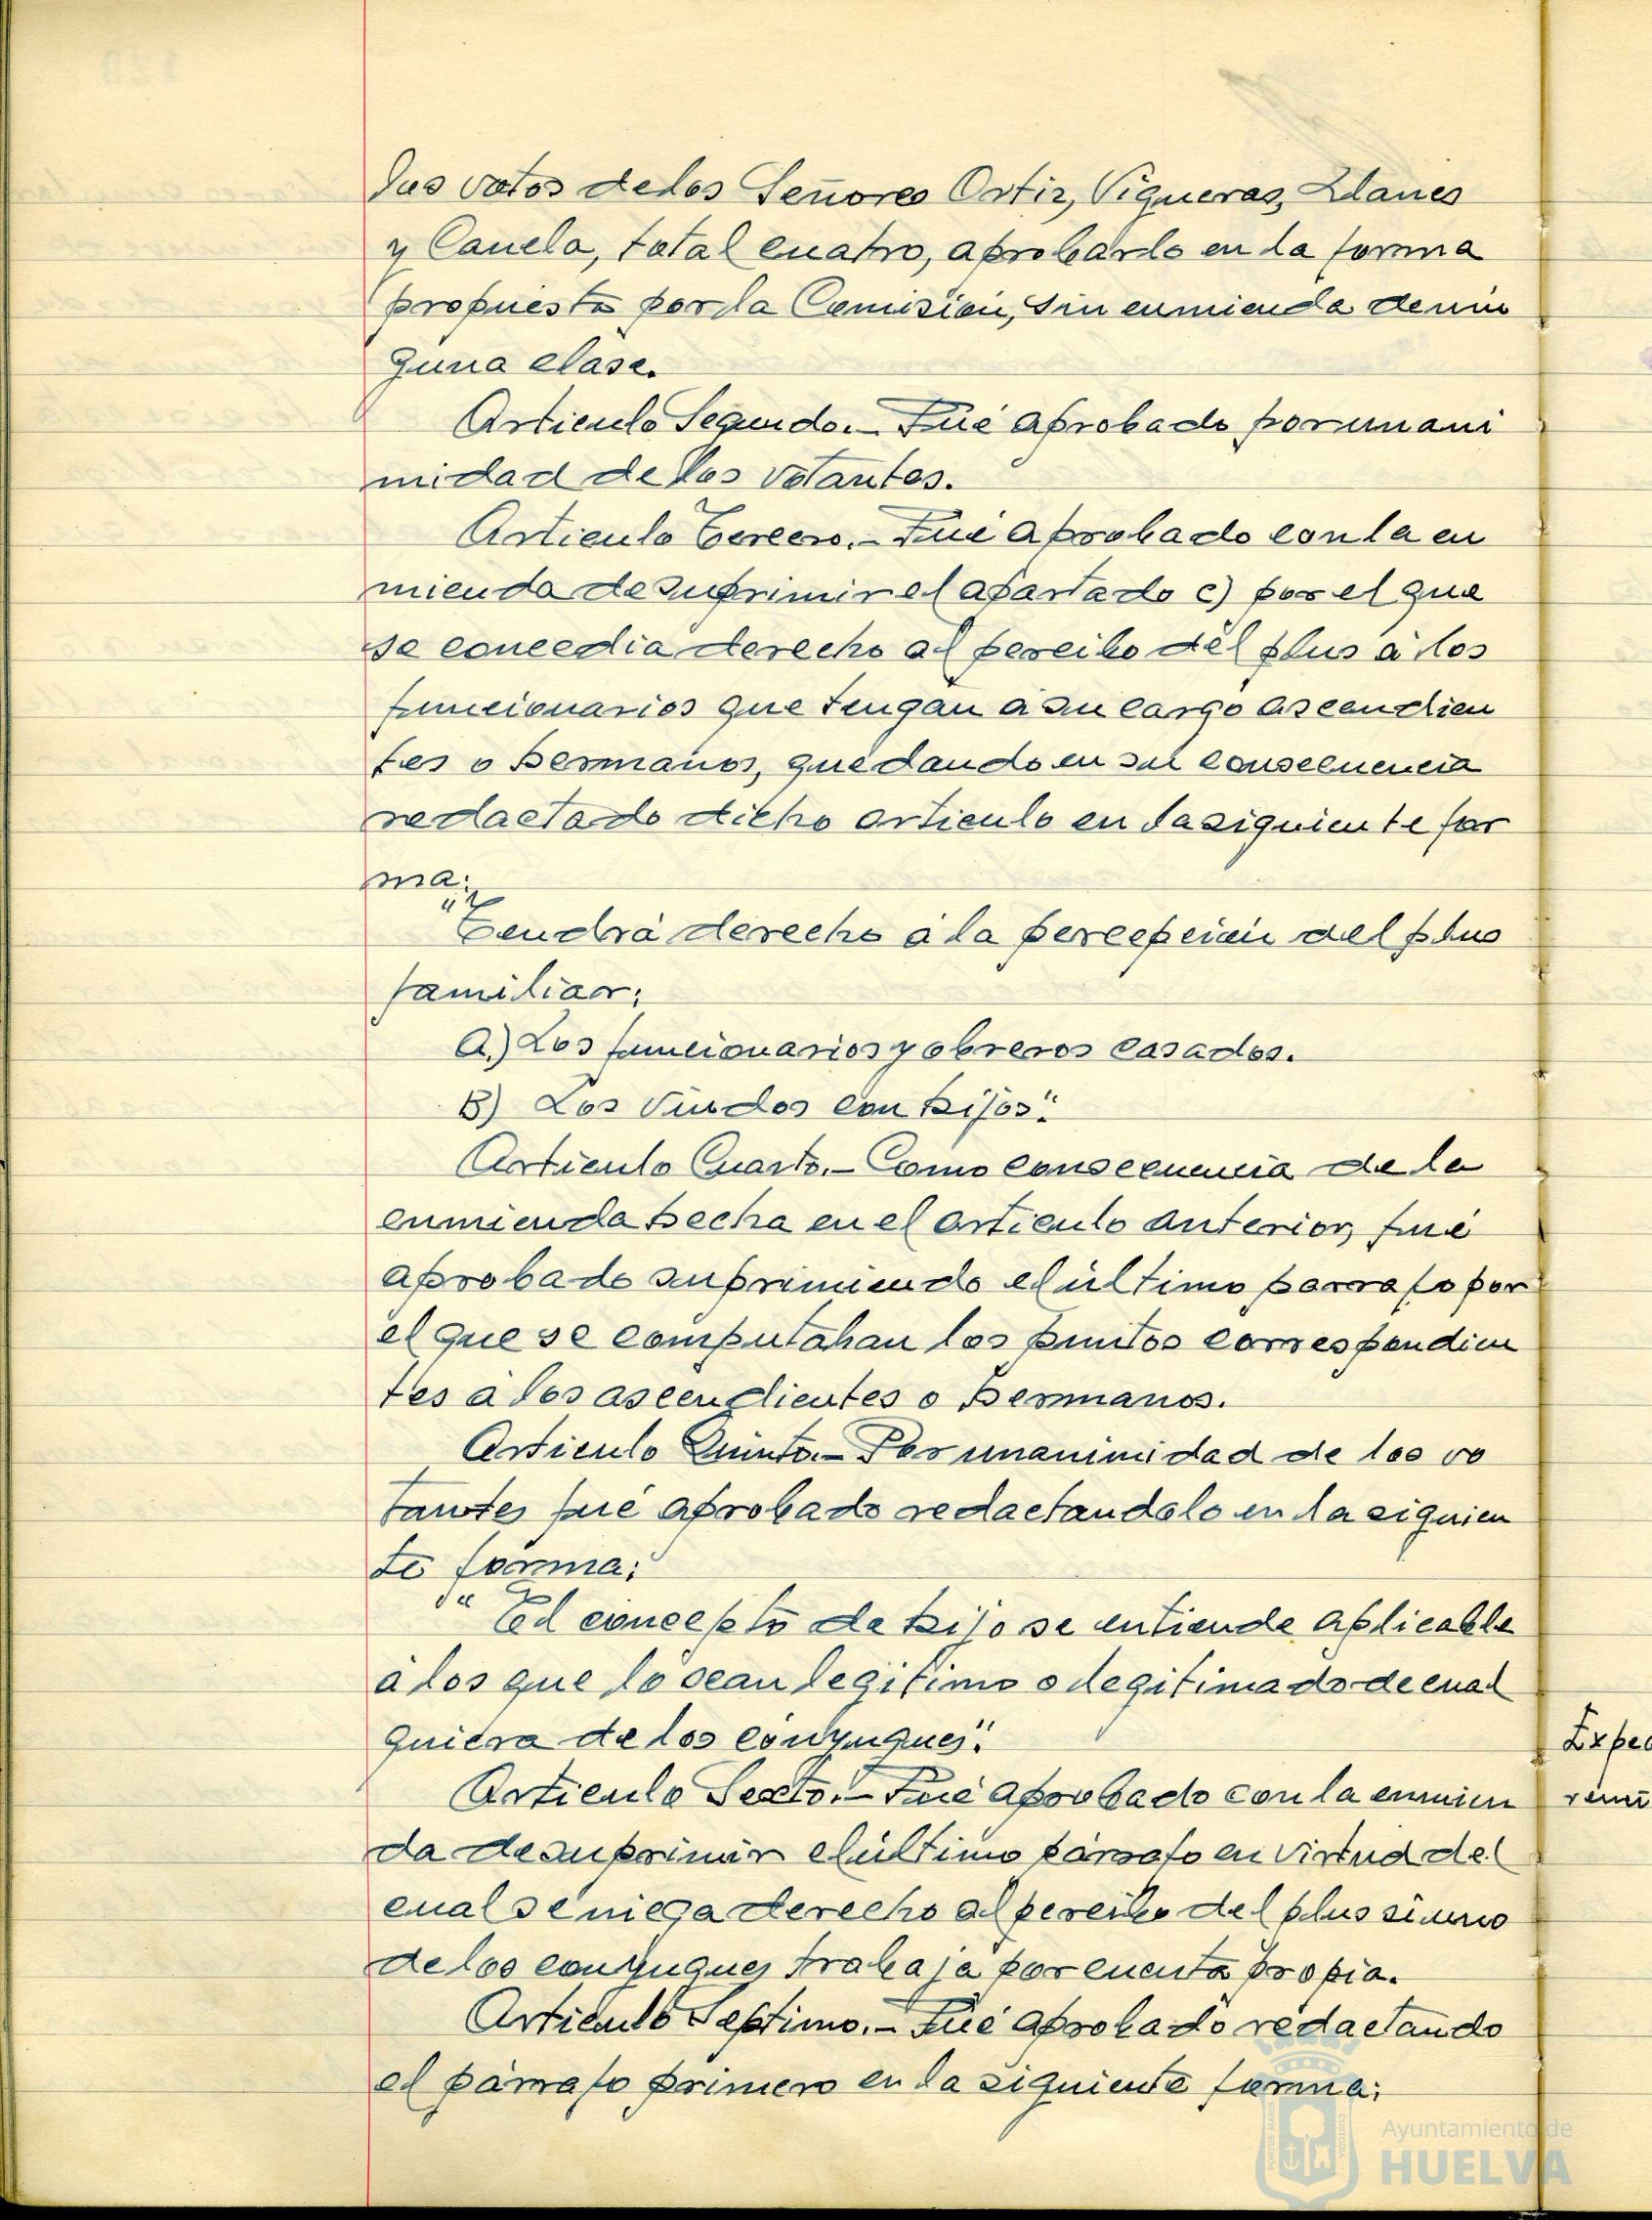 los votos de los Señores Ortiz, Vigueras, Llanes
y Canela, total cuatro, aprobarlo en la forma
propuesta por la Comisión, sin enmienda de nin
guna clase.
Articulo Segundo.- Fué aprobado por unani
midad de los votantes.
Articulo Tercero.- Fué aprobado con la en
mienda de suprimir el apartado c) por el que
se concedia derecho al percibo del plus á los
funcionarios que tengan á su cargo ascendien
tes o hermanos, quedando en su consecuencia
redactado dicho articulo en la siguiente for
ma:
"Tendrá derecho á la percepción del plus
familiar:
A.) Los funcionarios y obreros casados.
B) Los viudos con hijos".
Articulo Cuarto.- Como consecuencia de la
enmienda hecha en el articulo anterior, fué
aprobado suprimiendo el último parrafo por
el que se computaban los puntos correspondien
tes á los ascendientes o hermanos.
Articulo Quinto.- Por unanimidad de los vo
tantes fué aprobado redactandolo en la siguien
te forma:
"El concepto de hijo se entiende aplicable
á los que lo sean legitimo o legitimado de cual
quiera de los cónyugues".
Articulo Sexto.- Fué aprobado con la enmien
da de suprimir el último párrafo en virtud del
cual se niega derecho al percibo del plus si uno
de los conyugues trabaja por cuenta propia.
Articulo Septimo.- Fué aprobado redactando
el párrafo primero en la siguiente forma:
Expe
Ayuntamiento de
HUELVA